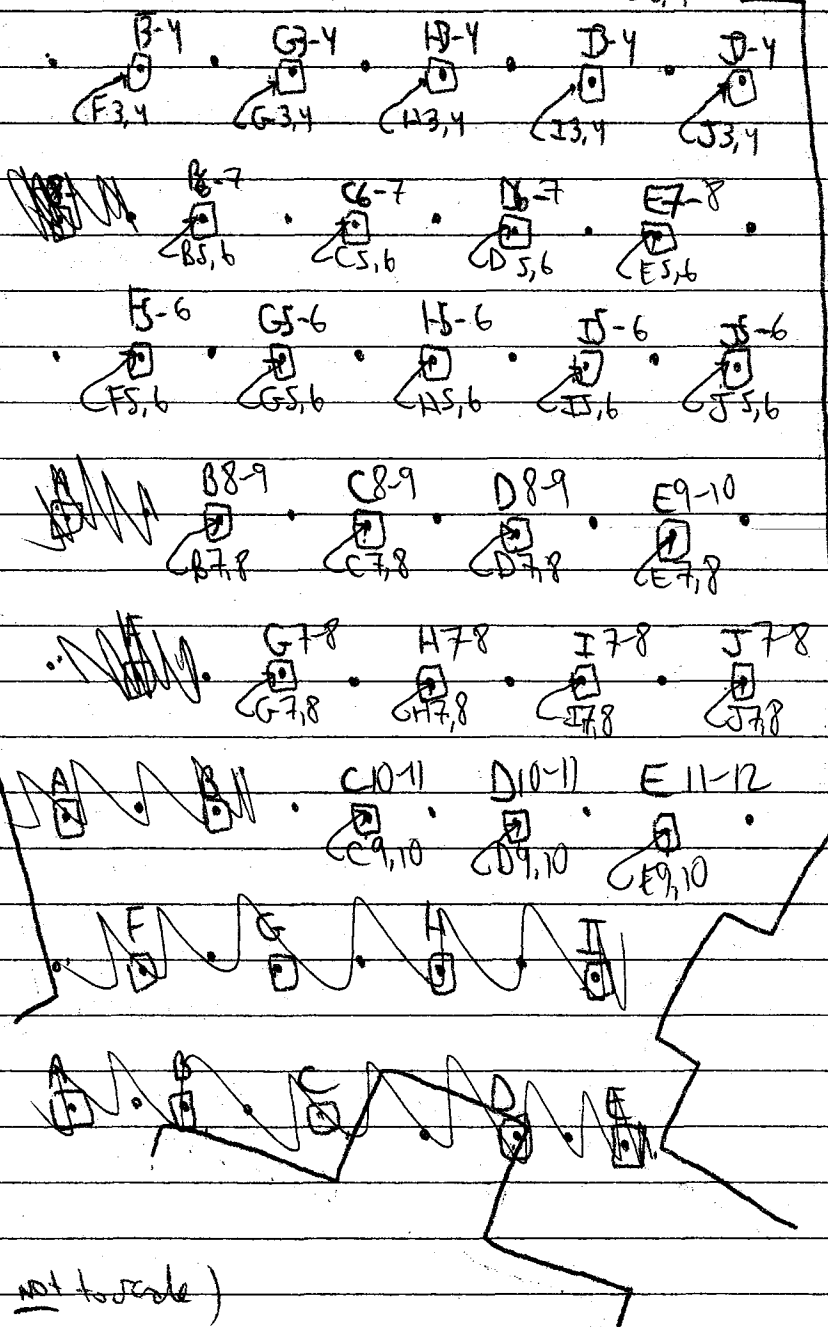 F3-4 G3-4 H3-4 I3-4 J3-4
F3,4 G3,4 H3,4 I3,4 J3,4
B6-7 C6-7 D6-7 E7-8
B5,6 C5,6 D5,6 E5,6
F5-6 G5-6 H5-6 I5-6 J5-6
F5,6 G5,6 H5,6 I5,6 J5,6
A B8-9 C8-9 D8-9 E9-10
B7,8 C7,8 D7,8 E7,8
F G7-8 H7-8 I7-8 J7-8
G7,8 H7,8 I7,8 J7,8
A B C10-11 D10-11 E11-12
C9,10 D9,10 E9,10
F G H I
A B C D E
NOT to scale)